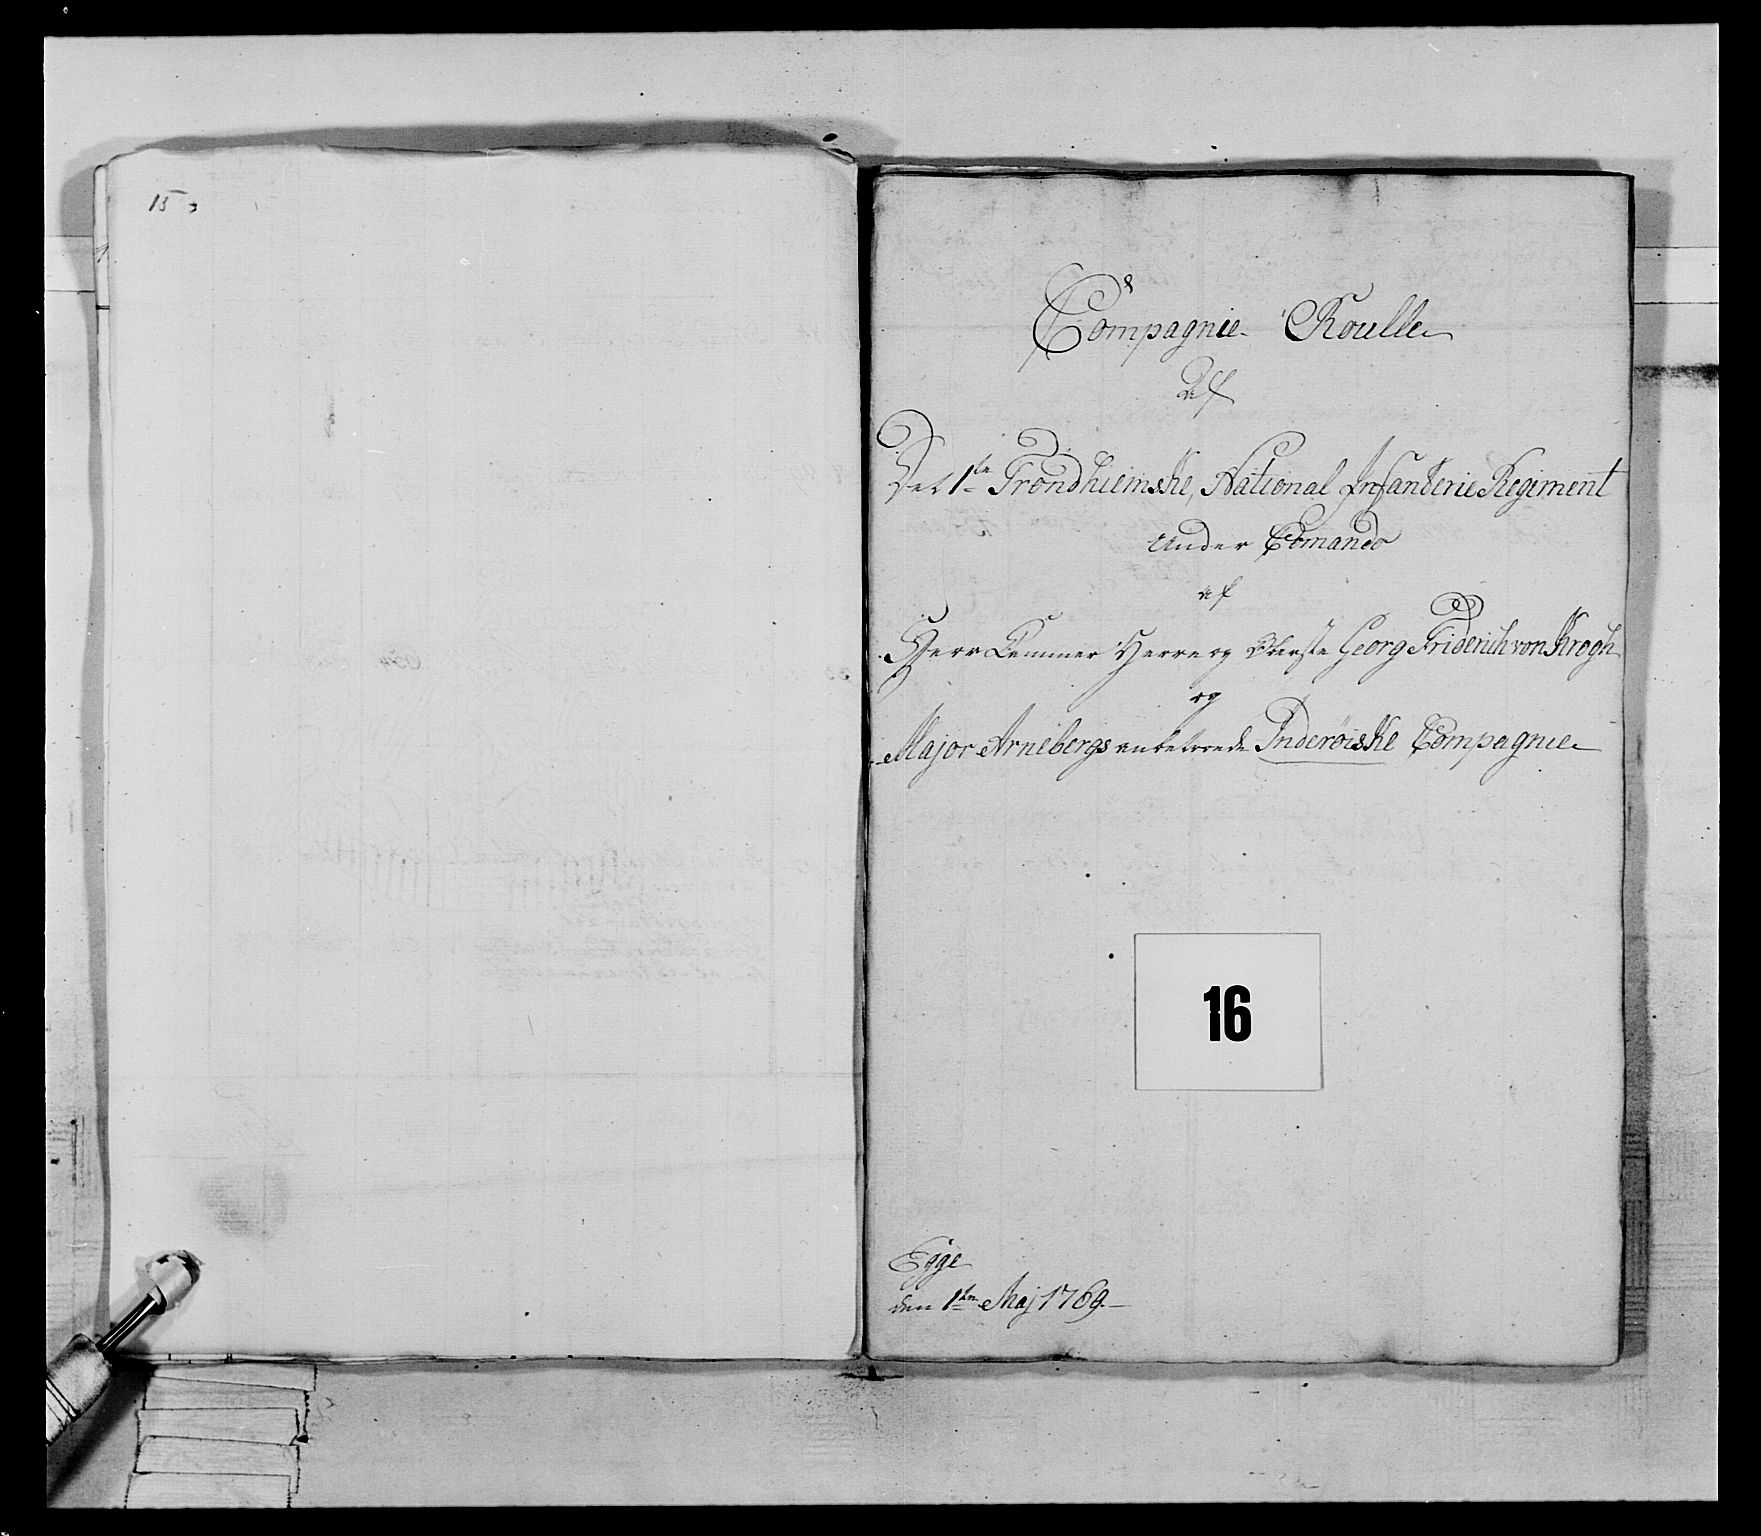 15
Compagnie Roulle
Af
Det 1ste Trondhiemske, National Infanterie Regiment
Under Comando
af
Herr Cammer Herre og Oberste Georg Friderich von Krogh
og
Major Arnebergs anbetroede Inderöiske Compagnie
16
Egge
den 1ten Maj 1769.